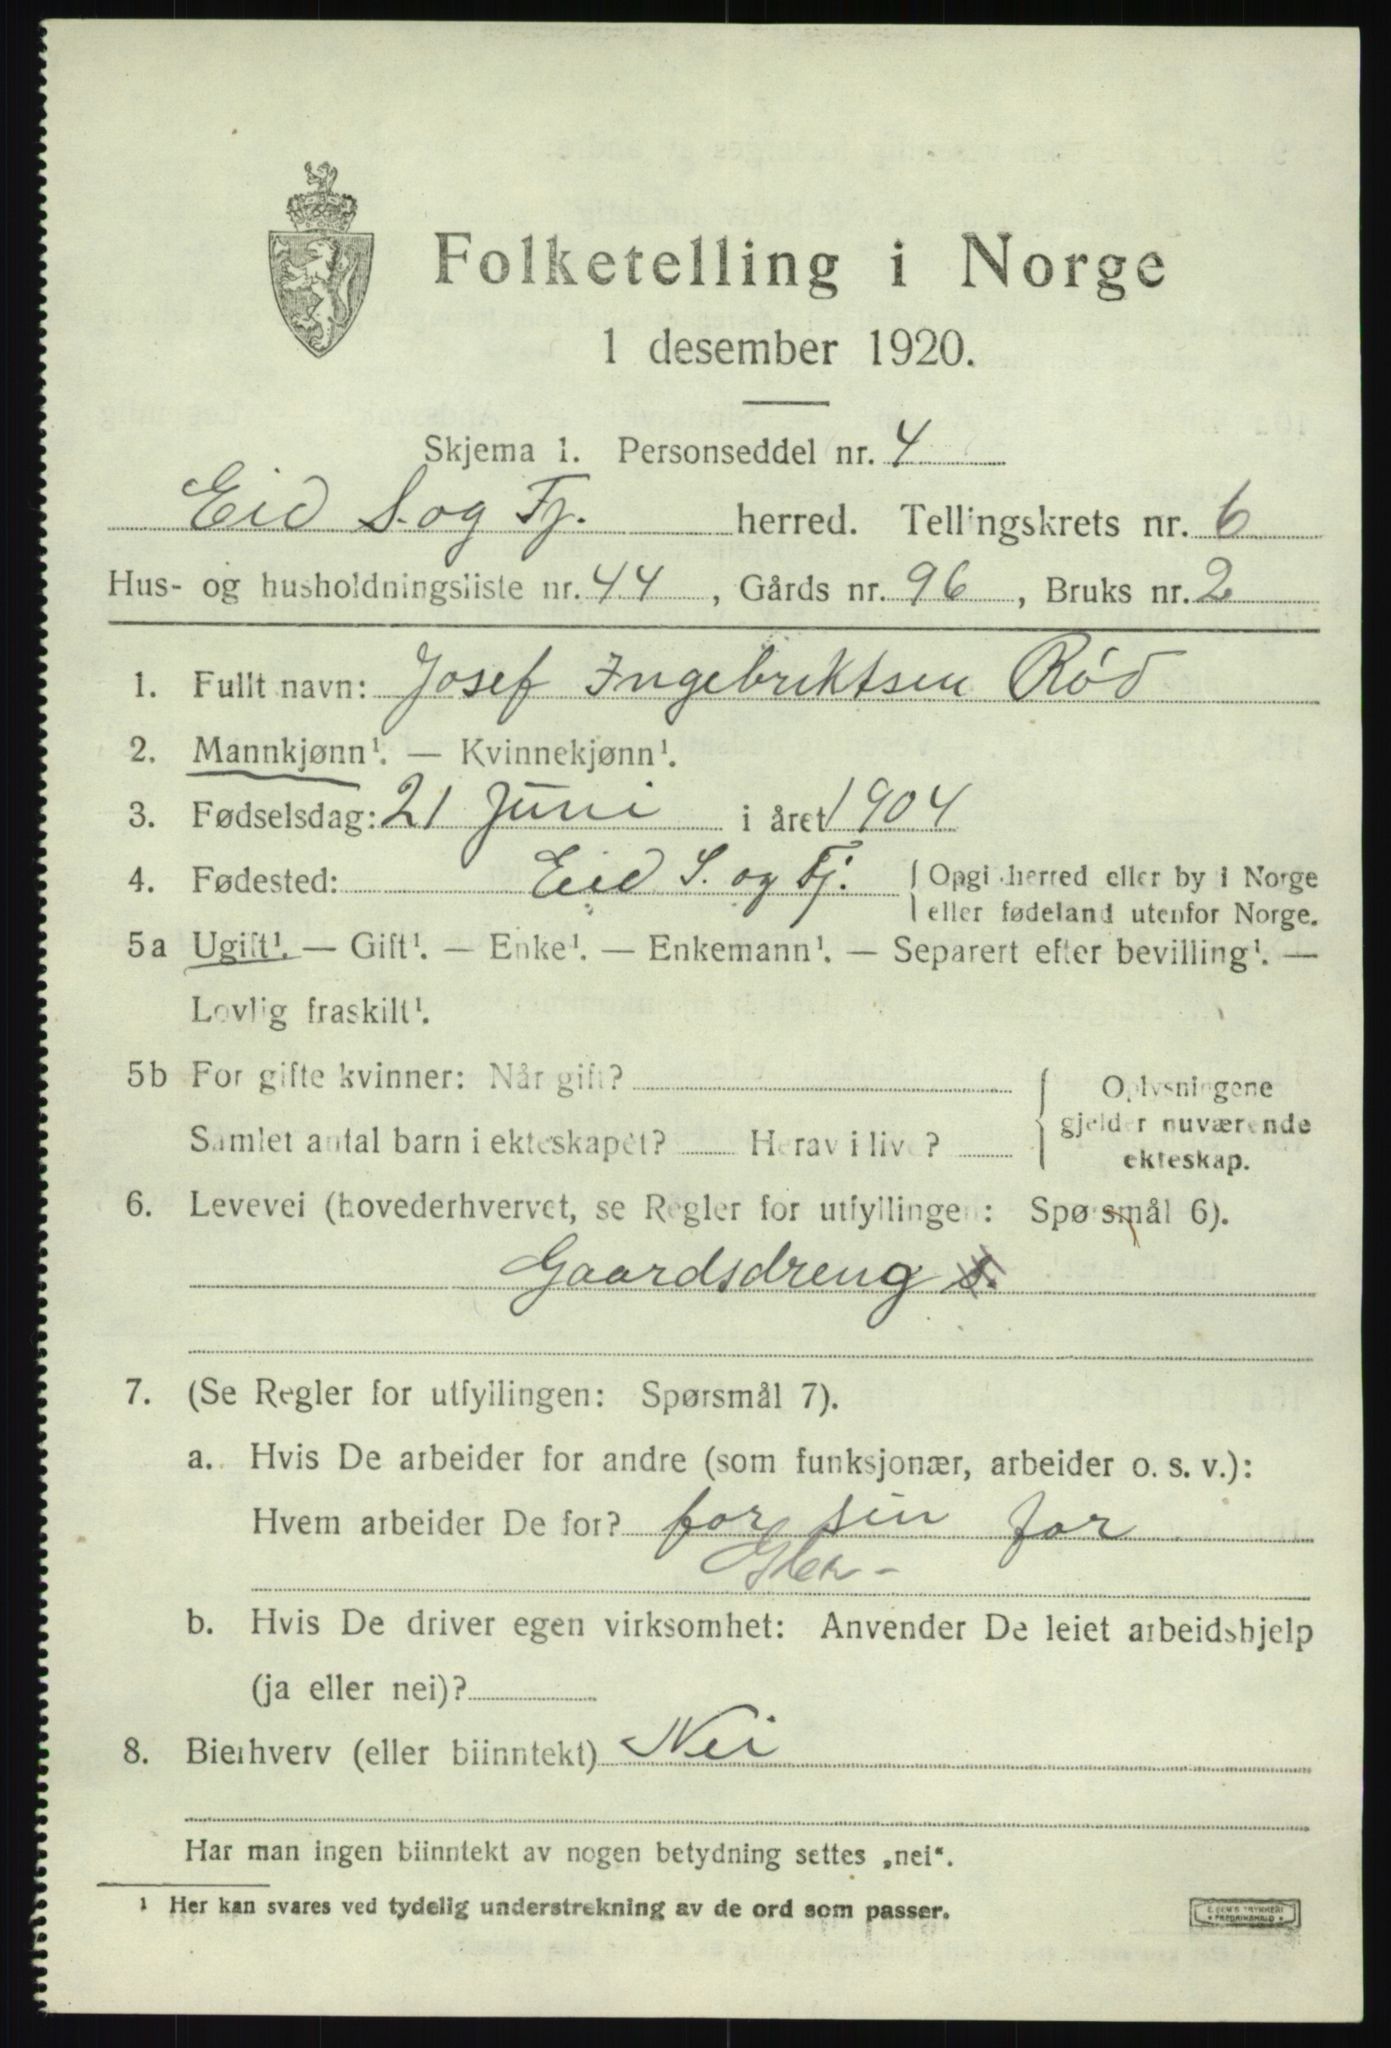 Folketelling i Norge
1 desember 1920.
Skjema 1. Personseddel nr. 4
Eid S. og Fj. herred. Tellingskrets nr. 6
Hus- og husholdningsliste nr. 44, Gårds nr. 96, Bruks nr. 2
1. Fullt navn: Josef Ingebriktsen Rød
2. Mannkjønn¹. — Kvinnekjønn¹.
3. Fødselsdag: 21 Juni i året 1904
4. Fødested: Eid S. og Fj. { Opgi herred eller by i Norge
eller fødeland utenfor Norge.
5a Ugift¹. — Gift¹. — Enke¹. — Enkemann¹. — Separert efter bevilling¹. —
Lovlig fraskilt¹.
5b For gifte kvinner: Når gift?
Samlet antal barn i ekteskapet? Herav i live?
{ Oplysningene
gjelder nuværende
ekteskap.
6. Levevei (hovederhvervet, se Regler for utfyllingen: Spørsmål 6).
Gaardsdreng s.
7. (Se Regler for utfyllingen: Spørsmål 7).
a. Hvis De arbeider for andre (som funksjonær, arbeider o. s. v.):
Hvem arbeider De for? for sin far
b. Hvis De driver egen virksomhet: Anvender De leiet arbeidshjelp
(ja eller nei)?
8. Bierhverv (eller biinntekt) Nei
Har man ingen biinntekt av nogen betydning settes „nei“.
¹ Her kan svares ved tydelig understrekning av de ord som passer.